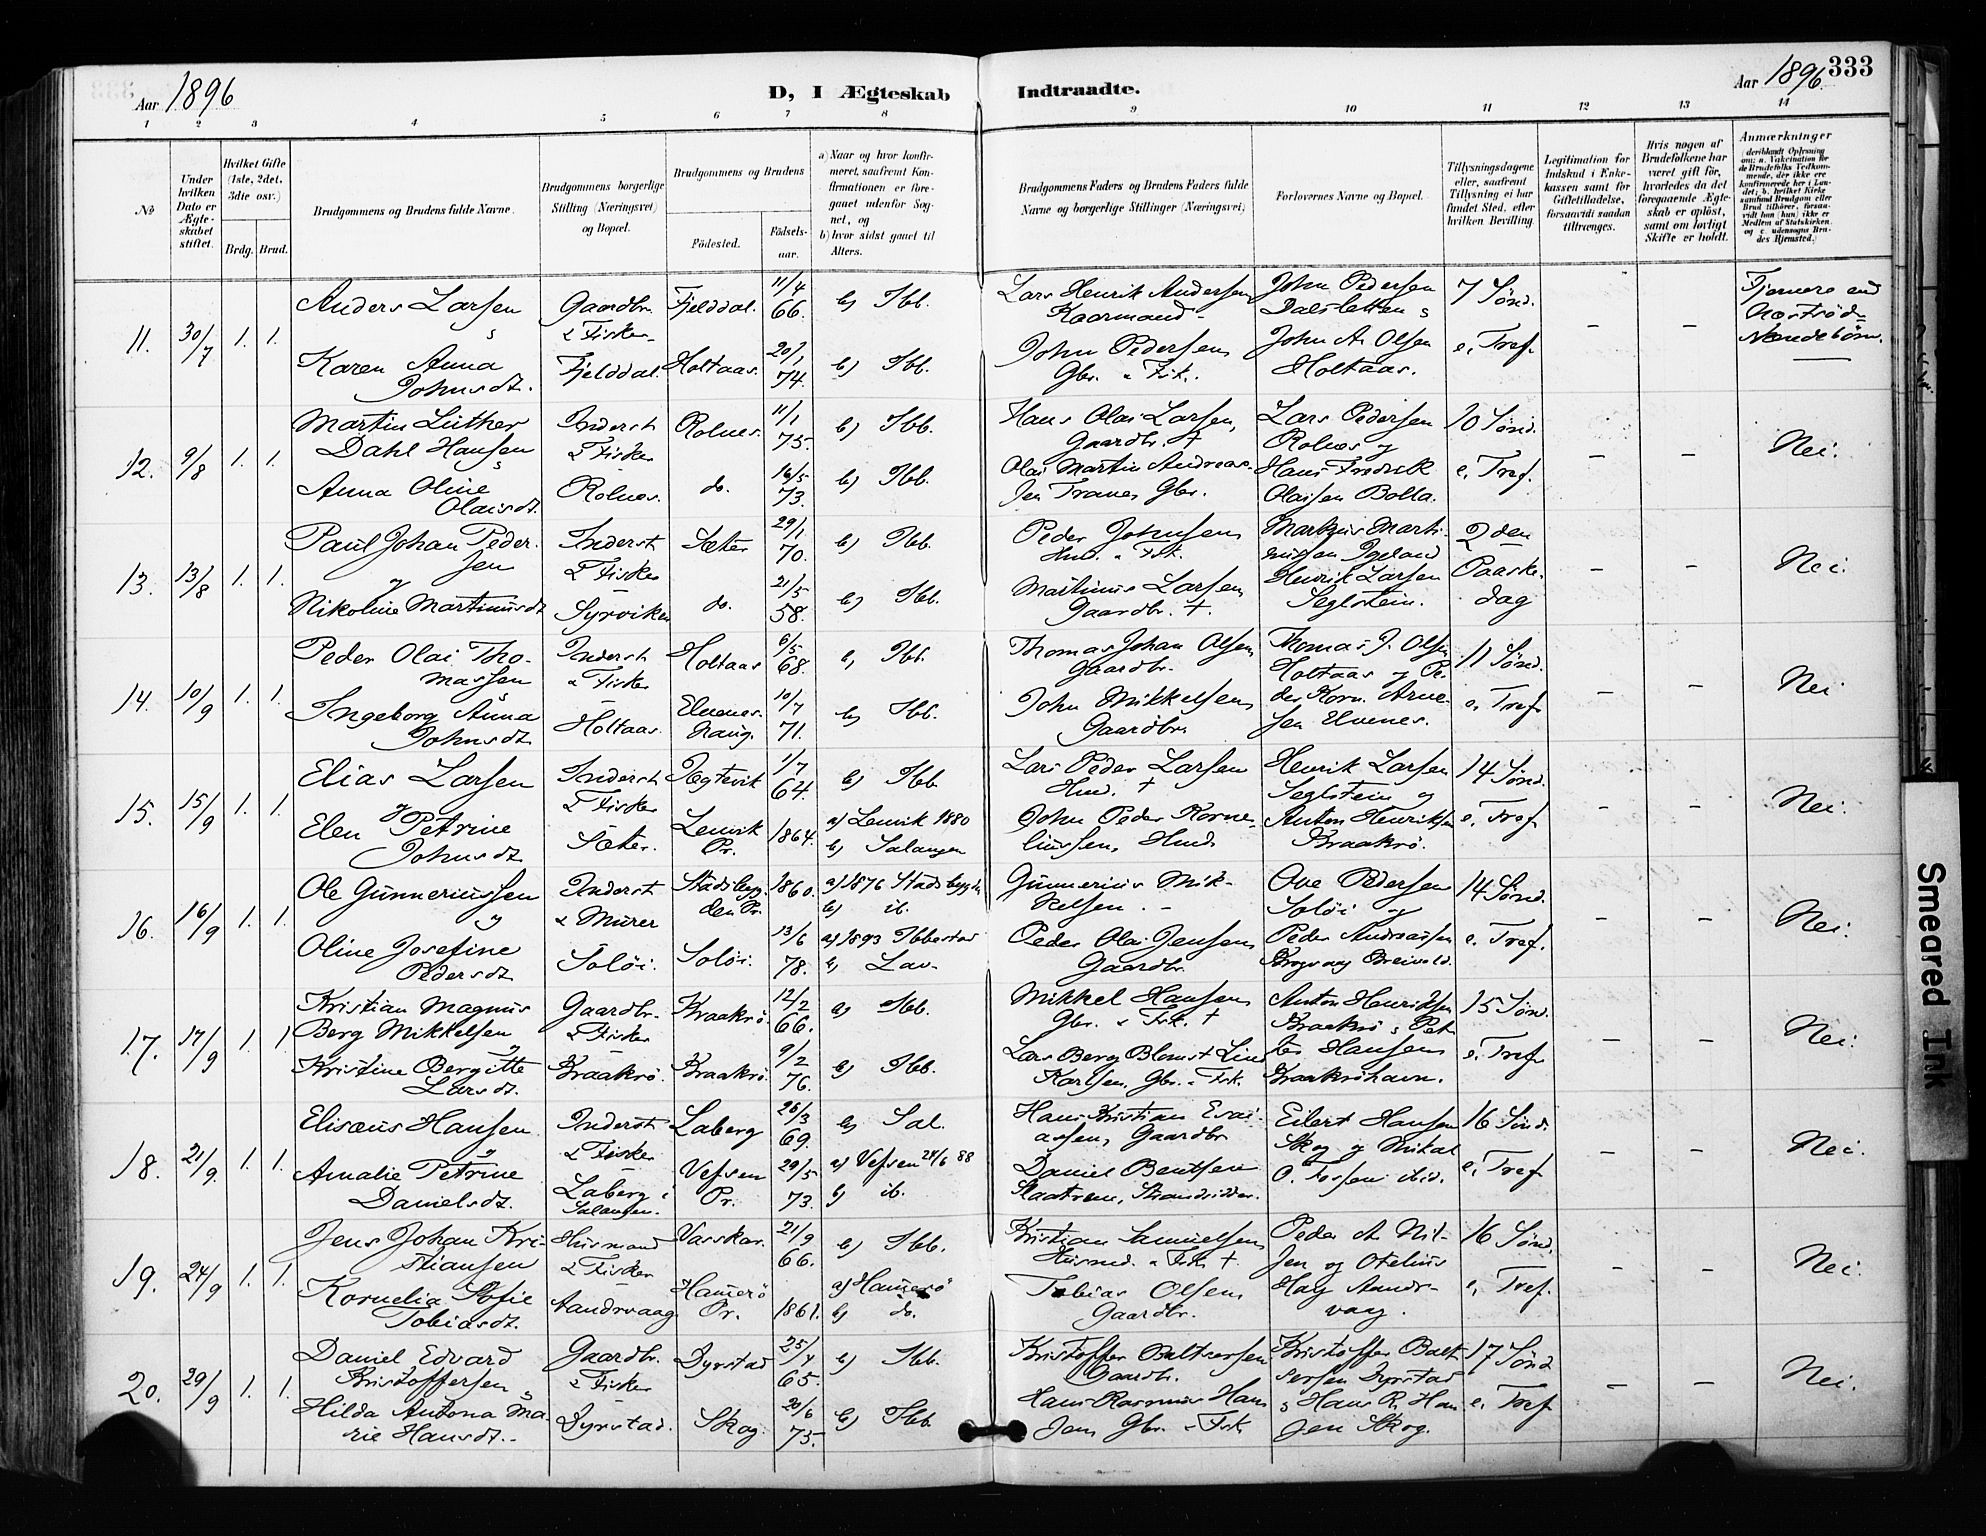 Aar 1896
D, I Ægteskab Indtraadte.
Aar 1896. 333
1 2 3 4 5 6 7 8 9 10 11 12 13 14
No
Under hvilken Dato er Ægteskabet stiftet.
Hvilket Gifte (1ste, 2det, 3die osv.)
Brdg. Brud.
Brudgommens og Brudens fulde Navne.
Brudgommens borgerlige Stilling (Næringsvei) og Bopæl.
Brudgommens og Brudens
Fødested.
Fødselsaar.
a) Naar og hvor konfirmeret, saafremt Konfirmationen er foregaaet udenfor Sognet, og
b) hvor sidst gaaet til Alters.
Brudgommens Faders og Brudens Faders fulde Navne og borgerlige Stillinger (Næringsvei)
Forlovernes Navne og Bopæl.
Tillysningsdagene eller, saafremt Tillysning ei har fundet Sted, efter hvilken Bevilling
Legitimation for Indskud i Enkekassen samt for Giftetilladelse, forsaavidt saadan tiltrænges.
Hvis nogen af Brudefolkene har været gift før, hvorledes da det foregaaende Ægteskab er opløst, samt om lovligt Skifte er holdt.
Anmærkninger
(deriblandt Oplysning om: a. Vakcination for de Brudefolks Vedkommende, der ikke ere konfirmerede her i Landet; b. hvilket Kirkesamfund Brudgom eller Brud tilhører, forsaavidt han (hun) ikke er Medlem af Statskirken, og c. udensogns Brudes Hjemsted.)
11. 30/7 1. 1.
Anders Larsen &
Karen Anna Johnsdt.
Gaardbr. & Fisker Fjelddal.
Fjelddal. 11/4 66. b) Ibb.
Holtaas. 20/1 74. b) Ibb.
Lars Henrik Andersen Kaarmand
John Pedersen Gbr. & Fisk.
John Pedersen Dalsletten &
John A. Olsen Holtaas.
7 Sønd. e. Tref.
– –
Fjernere end Næstsødskendebørn.
12. 9/8 1. 1.
Martin Luther Dahl Hansen &
Anna Oline Olaisdt.
Inderst & Fisker Rolnes.
Rolnes. 11/1 75. b) Ibb.
do. 16/5 73. b) Ibb.
Hans Olai Larsen, Gaardbr. †
Olai Martin Andreassen Tranes Gbr.
Lars Pedersen Rolnes og
Hans Fredrik Olaisen Bolla.
10 Sønd. e. Tref.
– –
Nei.
13. 13/8 1. 1.
Paul Johan Pedersen og
Nikoline Martinusdt
Inderst & Fisker Syrviken
Sæter 29/1 70. b) Ibb.
do. 21/5 58. b) Ibb.
Peder Johnsen Hmd. & Fisk.
Martinus Larsen, Gaardbr. †.
Markus Martinussen Igeland
Henrik Larsen Seglstein.
2den Paaskedag
– –
Nei.
14. 10/9 1. 1.
Peder Olai Thomassen &
Ingeborg Anna Johnsdt
Inderst & Fisker Holtaas.
Holtaas 6/5 68. b) Ibb.
Elvenes, 10/7 71. b) Ibb.
Thomas Johan Olsen, Gaardbr.
John Mikkelsen Gaardbr.
Thomas J. Olsen Holtaas og Peder Korn. Arnesen Elvenes.
11 Sønd. e. Tref.
– –
Nei
15. 15/9 1. 1.
Elias Larsen og
Elen Petrine Johnsdt
Inderst & Fisker Sæter.
Jegtevik 1/7 64. b) Ibb
Lenvik Pr. 1864. a) Lenvik 1880 b) Salangen
Lars Peder Larsen Hmd. †
John Peder Korneliussen, Hmd.
Henrik Larsen Seglstein og
Anton Henriksen Kraakrø.
14 Sønd. e. Tref
– –
Nei.
16. 16/9 1. 1.
Ole Gunneriussen og
Oline Josefine Pedersdt
Inderst & Murer Soløi.
Stadsbygden Pr. 1860. a) 1876 Stadsbygden b) ib.
Soløi. 13/6 78. a) 1893 Ibbestad b) Lav.
Gunnerius Mikkelsen. –
Peder Olai Jensen, Gaardbr.
Ove Pedersen Soløi og
Peder Andreassen Krogvaag Breivold.
14 Sønd. e. Tref.
– –
Nei.
17. 17/9 1. 1.
Kristian Magnus Berg Mikkelsen og
Kristine Bergitte Larsdt.
Gaardbr. & Fisker Kraakrø.
Kraakrø. 12/2 66. a) Ibb.
Kraakrø. 9/2 76. b) Ibb.
Mikkel Hansen, Gbr. & Fisk. †
Lars Berg Blomst Lind Karlsen, Gbr. & Fisk.
Anton Henriksen Kraakrø & Petter Hansen Kraakrøhavn.
15 Sønd. e. Tref
– –
Nei.
18. 21/9. 1. 1.
Elisæus Hansen og
Amalie Petrine Danielsdt.
Inderst & Fisker Laberg i Salangen.
Laberg 26/3 69. b) Sal.
Vefsen Pr. 29/5 73. a) Vefsen 24/6 88 b) ib.
Hans Kristian Esaiassen, Gaardbr
Daniel Bentsen Slaatrem, Strandsidder.
Eilert Hansen Skog og Mikal O. Fossen ibid.
16 Sønd. e. Tref
– –
Nei.
19. 24/9 1. 1.
Jens Johan Kristiansen
Kornelia Sofie Tobiasdt.
Husmand & Fisker Aandrvaag
Vasskar. 21/9 66. b) Ibb.
Hamerø Pr. 1861. a) Hamerø b) do.
Kristian Samuelsen, Husmd. & Fisk. †
Tobias Olsen, Gaardbr.
Peder A. Nilsen og Otelius Hay Aandrvaag.
16 Sønd. e. Tref.
– –
Nei.
20. 29/9 1. 1.
Daniel Edvard Kristoffersen &
Hilda Antona Marie Hansdt.
Gaardbr. & Fisker Dyrstad.
Dyrstad 25/4 65. b) Ibb.
Skog. 20/6 75. b) Ibb.
Kristoffer Baltsersen Gaardbr.
Hans Rasmus Hansen Gbr. & Fisk
Kristoffer Baltsersen Dyrstad & Hans R. Hansen Skog.
17 Sønd e. Tref
– –
Nei.
Smeared Ink